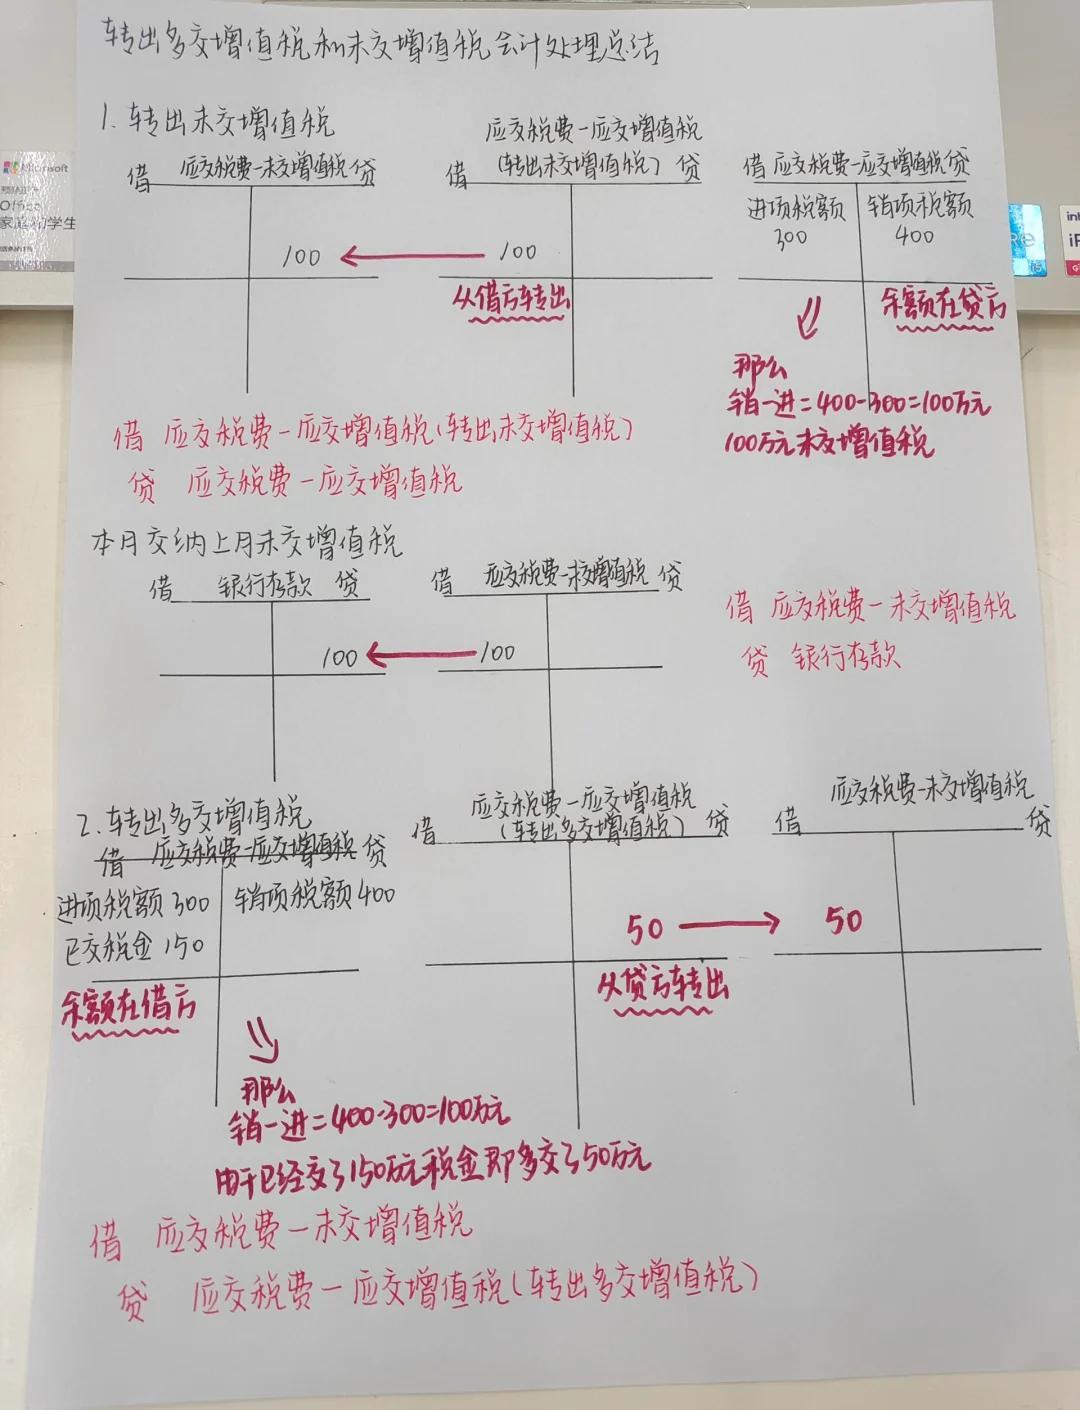 转出多交增值税和未交增值税会计处理总结
1.转出未交增值税
借 应交税费-未交增值税 贷
100
应交税费-应交增值税
借 (转出未交增值税) 贷
100
从借方转出
借 应交税费-应交增值税 贷
进项税额 销项税额
300 400
余额在贷方
那么
销-进=400-300=100万元
100万元未交增值税
借 应交税费-应交增值税(转出未交增值税)
贷 应交税费-应交增值税
本月交纳上月未交增值税
借 银行存款 贷
100
借 应交税费-未交增值税 贷
100
借 应交税费-未交增值税
贷 银行存款
2.转出多交增值税
借 应交税费-应交增值税 贷
进项税额300 销项税额400
已交税金150
余额在借方
那么
销-进=400-300=100万元
由于已经交了150万元税金即多交了50万元
应交税费-应交增值税
借 (转出多交增值税) 贷
50
从贷方转出
应交税费-未交增值税
借 贷
50
借 应交税费-未交增值税
贷 应交税费-应交增值税(转出多交增值税)
Microsoft
Office
家庭和学生